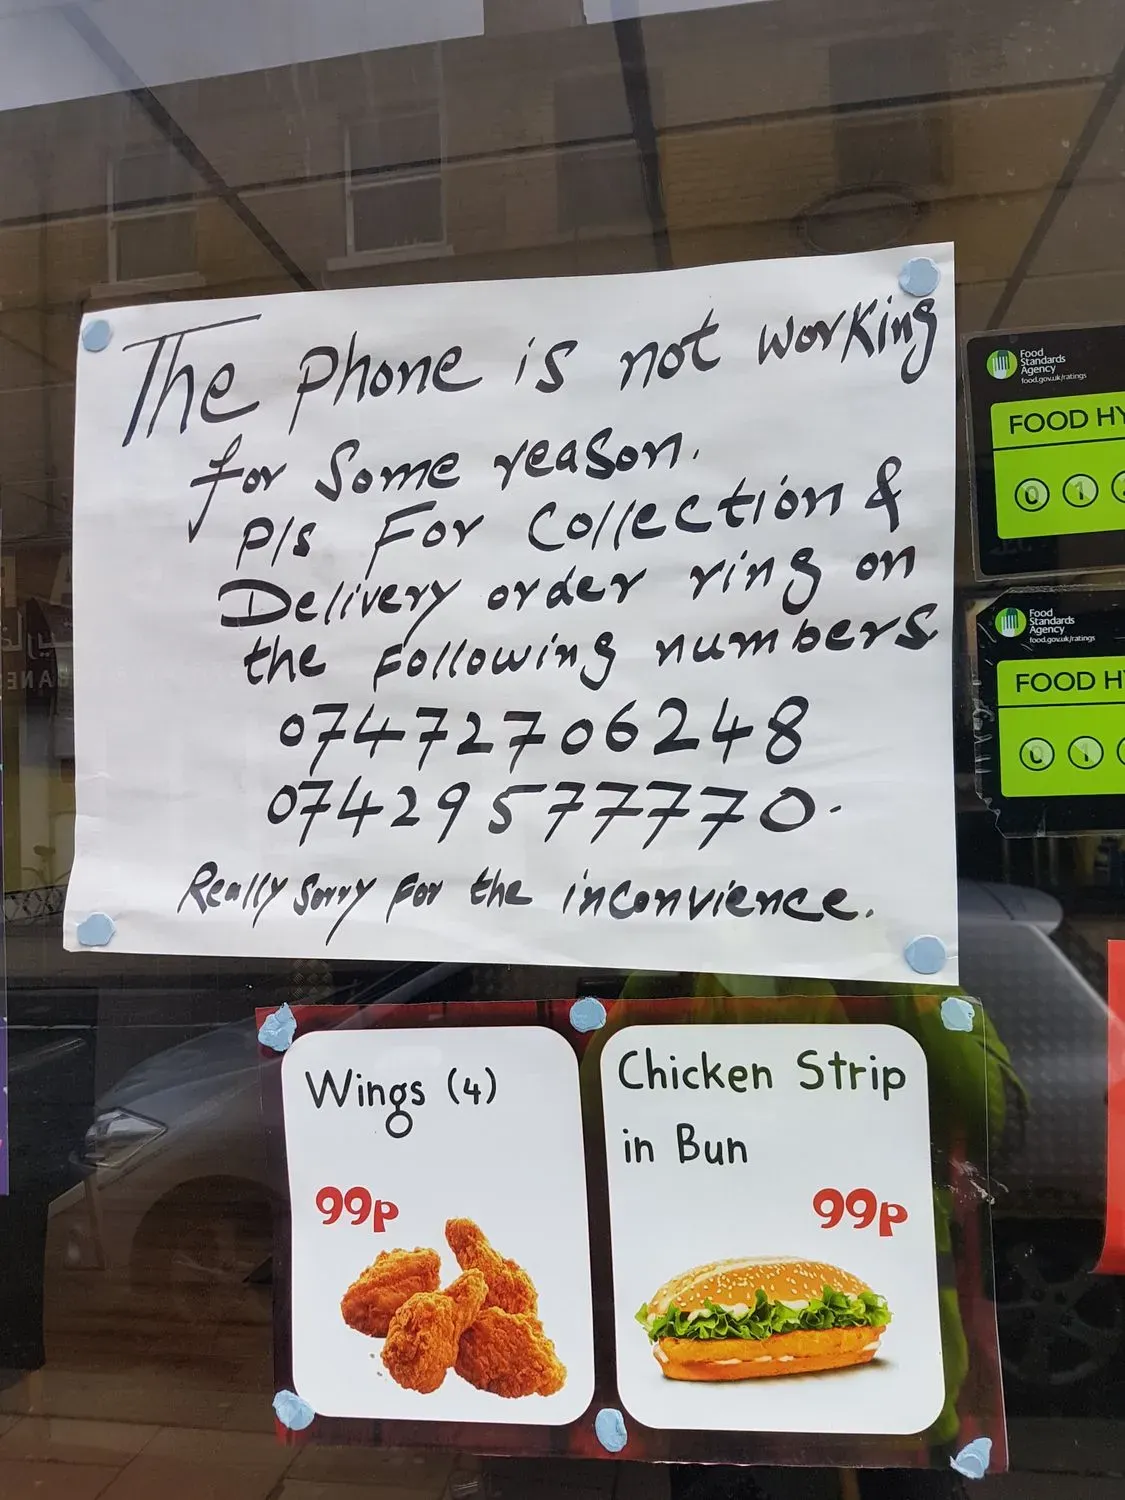 The phone is not working
for some reason.
Pls For Collection &
Delivery order ring on
the following numbers
07472706248
07429577770.
Really sorry for the inconvience.
Food
Standards
Agency
food.gov.uk/ratings
FOOD HY
0 1
Food
Standards
Agency
food.gov.uk/ratings
FOOD H
0 1
Wings (4)
99p
Chicken Strip
in Bun
99p